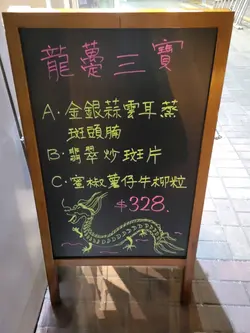 龍躉三寶
A·金銀蒜雲耳蒸
斑頭腩
B·翡翠炒斑片
C·蜜椒薯仔牛柳粒
$328.